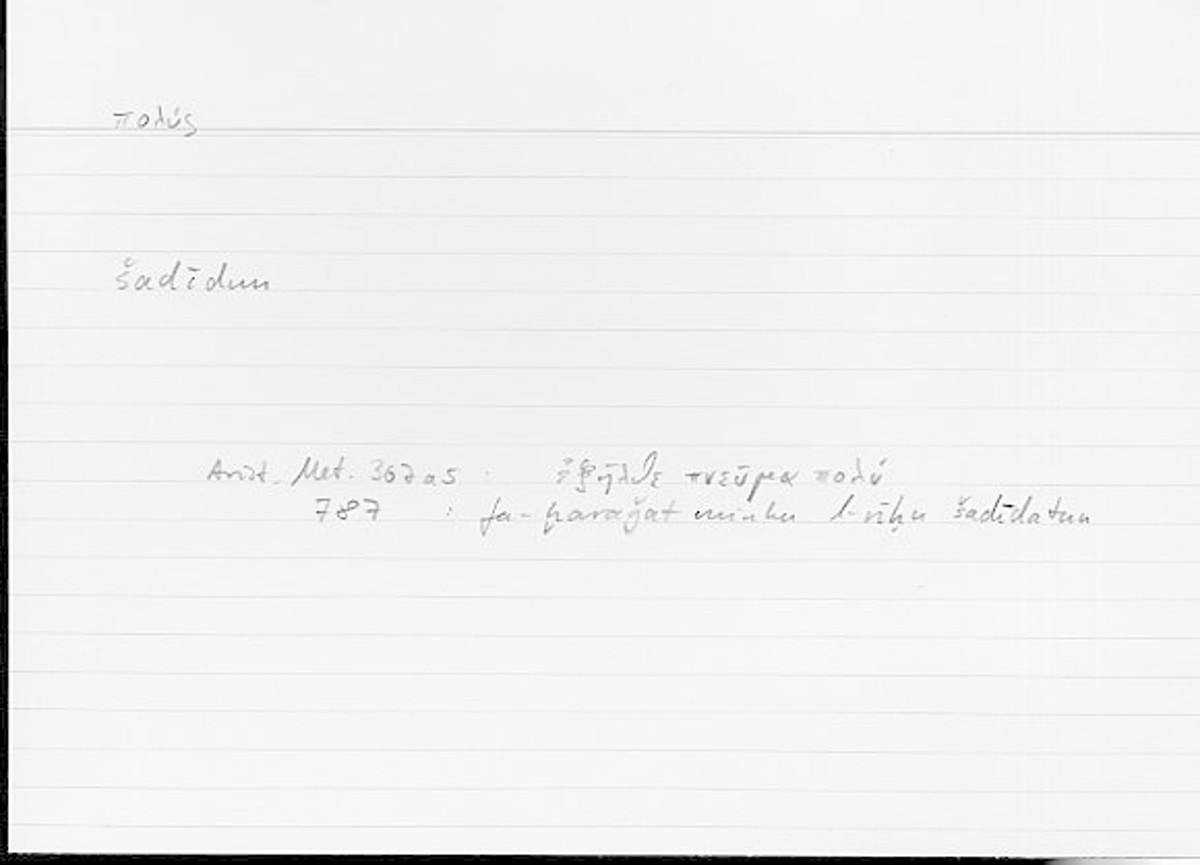 πολύς
šadīdun
Arist. Met. 367a5 : ἐξῆλθε πνεῦμα πολύ
787 : fa-ḫaraǧat minhu l-rīḥu šadīdatun